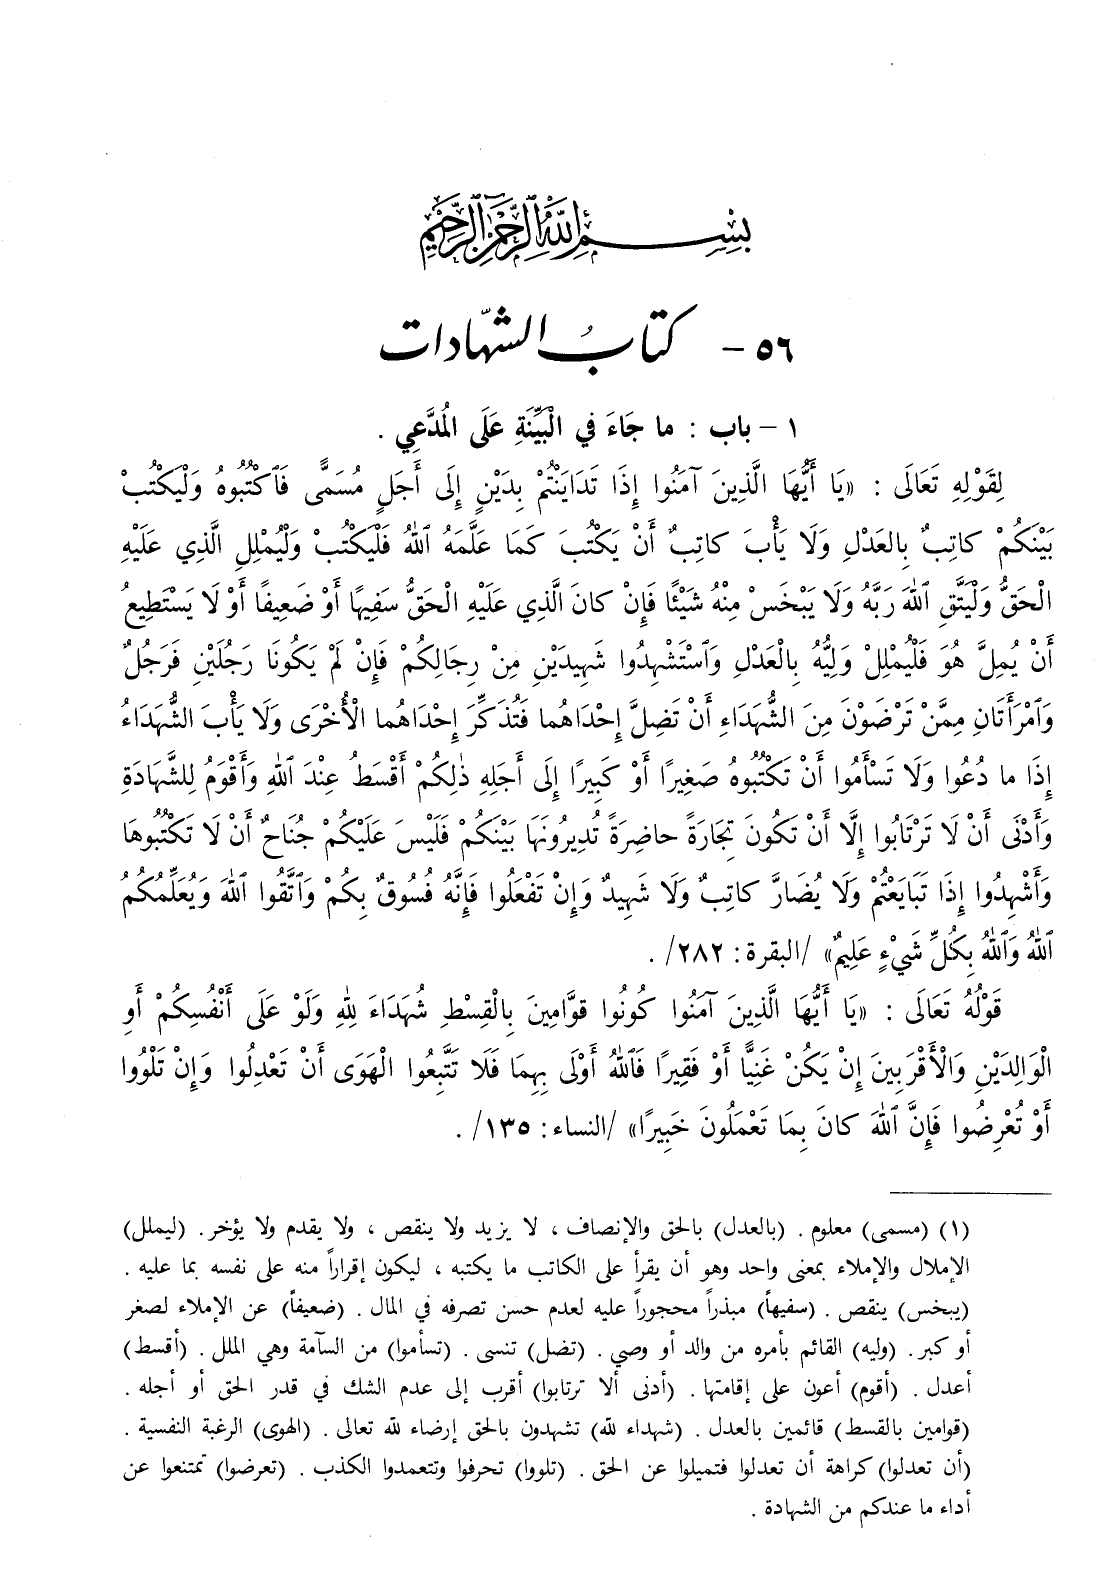 بِسْمِ اللَّهِ الرَّحْمَنِ الرَّحِيمِ
٥٦ - كتابُ الشّهادات
١ - باب : ما جَاءَ في الْبَيِّنَةِ عَلَى الْمُدَّعِي .
لِقَوْلِهِ تَعَالَى : «يَا أَيُّهَا الَّذِينَ آمَنُوا إِذَا تَدَايَنْتُمْ بِدَيْنٍ إِلَى أَجَلٍ مُسَمًّى فَٱكْتُبُوهُ وَلْيَكْتُبْ
بَيْنَكُمْ كاتِبٌ بِالعَدْلِ وَلَا يَأْبَ كاتِبٌ أَنْ يَكْتُبَ كَمَا عَلَّمَهُ ٱللهُ فَلْيَكْتُبْ وَلْيُمْلِلِ الَّذِي عَلَيْهِ
الْحَقُّ وَلْيَتَّقِ ٱللهَ رَبَّهُ وَلَا يَبْخَسْ مِنْهُ شَيْئًا فَإِنْ كانَ الَّذِي عَلَيْهِ الْحَقُّ سَفِيهًا أَوْ ضَعِيفًا أَوْ لَا يَسْتَطِيعُ
أَنْ يُمِلَّ هُوَ فَلْيُمْلِلْ وَلِيُّهُ بِالْعَدْلِ وَٱسْتَشْهِدُوا شَهِيدَيْنِ مِنْ رِجَالِكُمْ فَإِنْ لَمْ يَكُونَا رَجُلَيْنِ فَرَجُلٌ
وَٱمْرَأَتَانِ مِمَّنْ تَرْضَوْنَ مِنَ الشُّهَدَاءِ أَنْ تَضِلَّ إِحْدَاهُما فَتُذَكِّرَ إِحْدَاهُما الْأُخْرَى وَلَا يَأْبَ الشُّهَدَاءُ
إِذَا ما دُعُوا وَلَا تَسْأَمُوا أَنْ تَكْتُبُوهُ صَغِيرًا أَوْ كَبِيرًا إِلَى أَجَلِهِ ذٰلِكُمْ أَقْسَطُ عِنْدَ ٱللهِ وَأَقْوَمُ لِلشَّهَادَةِ
وَأَدْنَى أَنْ لَا تَرْتَابُوا إِلَّا أَنْ تَكُونَ تِجَارَةً حاضِرَةً تُدِيرُونَهَا بَيْنَكُمْ فَلَيْسَ عَلَيْكُمْ جُنَاحٌ أَنْ لَا تَكْتُبُوهَا
وَأَشْهِدُوا إِذَا تَبَايَعْتُمْ وَلَا يُضَارَّ كاتِبٌ وَلَا شَهِيدٌ وَإِنْ تَفْعَلُوا فَإِنَّهُ فُسُوقٌ بِكُمْ وَٱتَّقُوا ٱللهَ وَيُعَلِّمُكُمُ
ٱللهُ وَٱللهُ بِكُلِّ شَيْءٍ عَلِيمٌ» /البقرة: ٢٨٢/ .
قَوْلُهُ تَعَالَى : «يَا أَيُّهَا الَّذِينَ آمَنُوا كُونُوا قَوَّامِينَ بِالْقِسْطِ شُهَدَاءَ لِلهِ وَلَوْ عَلَى أَنْفُسِكُمْ أَوِ
الْوَالِدَيْنِ وَالْأَقْرَبِينَ إِنْ يَكُنْ غَنِيًّا أَوْ فَقِيرًا فَٱللهُ أَوْلَى بِهِمَا فَلَا تَتَّبِعُوا الْهَوَى أَنْ تَعْدِلُوا وَإِنْ تَلْوُوا
أَوْ تُعْرِضُوا فَإِنَّ ٱللهَ كانَ بِمَا تَعْمَلُونَ خَبِيرًا» /النساء: ١٣٥/ .
(١) (مسمى) معلوم . (بالعدل) بالحق والإنصاف ، لا يزيد ولا ينقص ، ولا يقدم ولا يؤخر . (ليملل)
الإملال والإملاء بمعنى واحد وهو أن يقرأ على الكاتب ما يكتبه ، ليكون إقراراً منه على نفسه بما عليه .
(يبخس) ينقص . (سفيهاً) مبذراً محجوراً عليه لعدم حسن تصرفه في المال . (ضعيفاً) عن الإملاء لصغر
أو كبر . (وليه) القائم بأمره من والد أو وصي . (تضل) تنسى . (تسأموا) من السآمة وهي الملل . (أقسط)
أعدل . (أقوم) أعون على إقامتها . (أدنى ألا ترتابوا) أقرب إلى عدم الشك في قدر الحق أو أجله .
(قوامين بالقسط) قائمين بالعدل . (شهداء لله) تشهدون بالحق إرضاء لله تعالى . (الهوى) الرغبة النفسية .
(أن تعدلوا) كراهة أن تعدلوا فتميلوا عن الحق . (تلووا) تحرفوا وتتعمدوا الكذب . (تعرضوا) تمتنعوا عن
أداء ما عندكم من الشهادة .